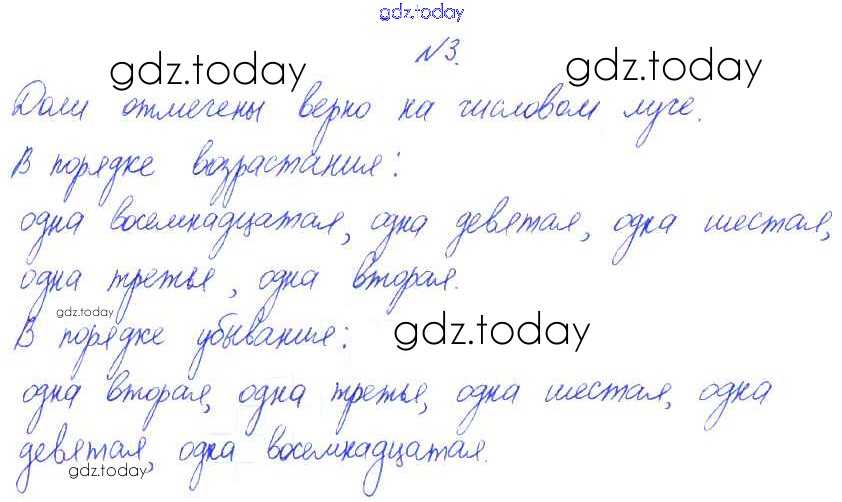 gdz.today
№3.
gdz.today gdz.today
Доли отмечены верно на числовом луче.
В порядке возрастания:
одна восемнадцатая, одна девятая, одна шестая,
одна третья, одна вторая.
gdz.today
В порядке убывания: gdz.today
одна вторая, одна третья, одна шестая, одна
девятая, одна восемнадцатая.
gdz.today